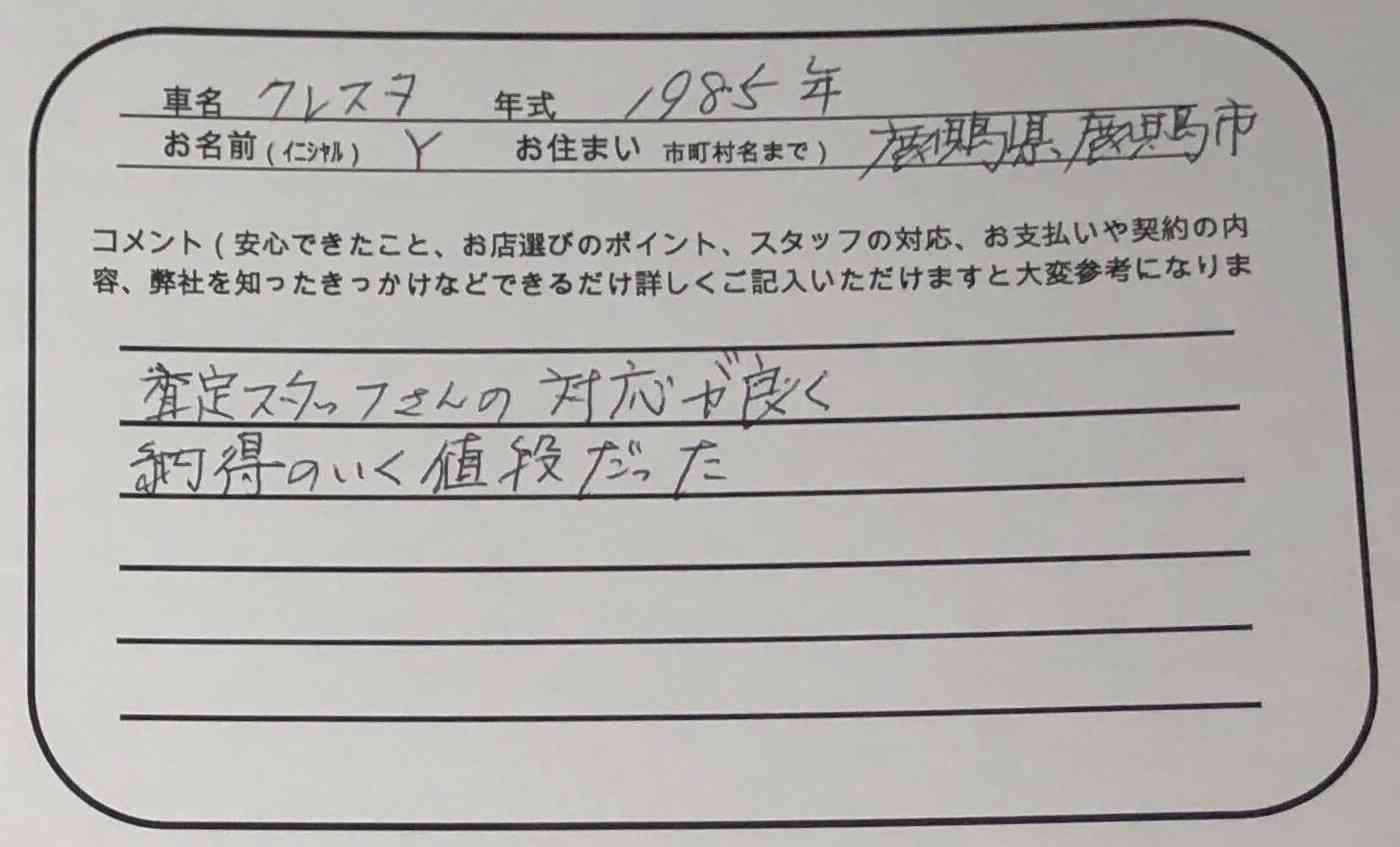 車名 クレスタ 年式 1985年
お名前(イニシャル) Y お住まい 市町村名まで) 鹿児島県鹿児島市
コメント(安心できたこと、お店選びのポイント、スタッフの対応、お支払いや契約の内
容、弊社を知ったきっかけなどできるだけ詳しくご記入いただけますと大変参考になりま
査定スタッフさんの対応が良く
納得のいく値段だった